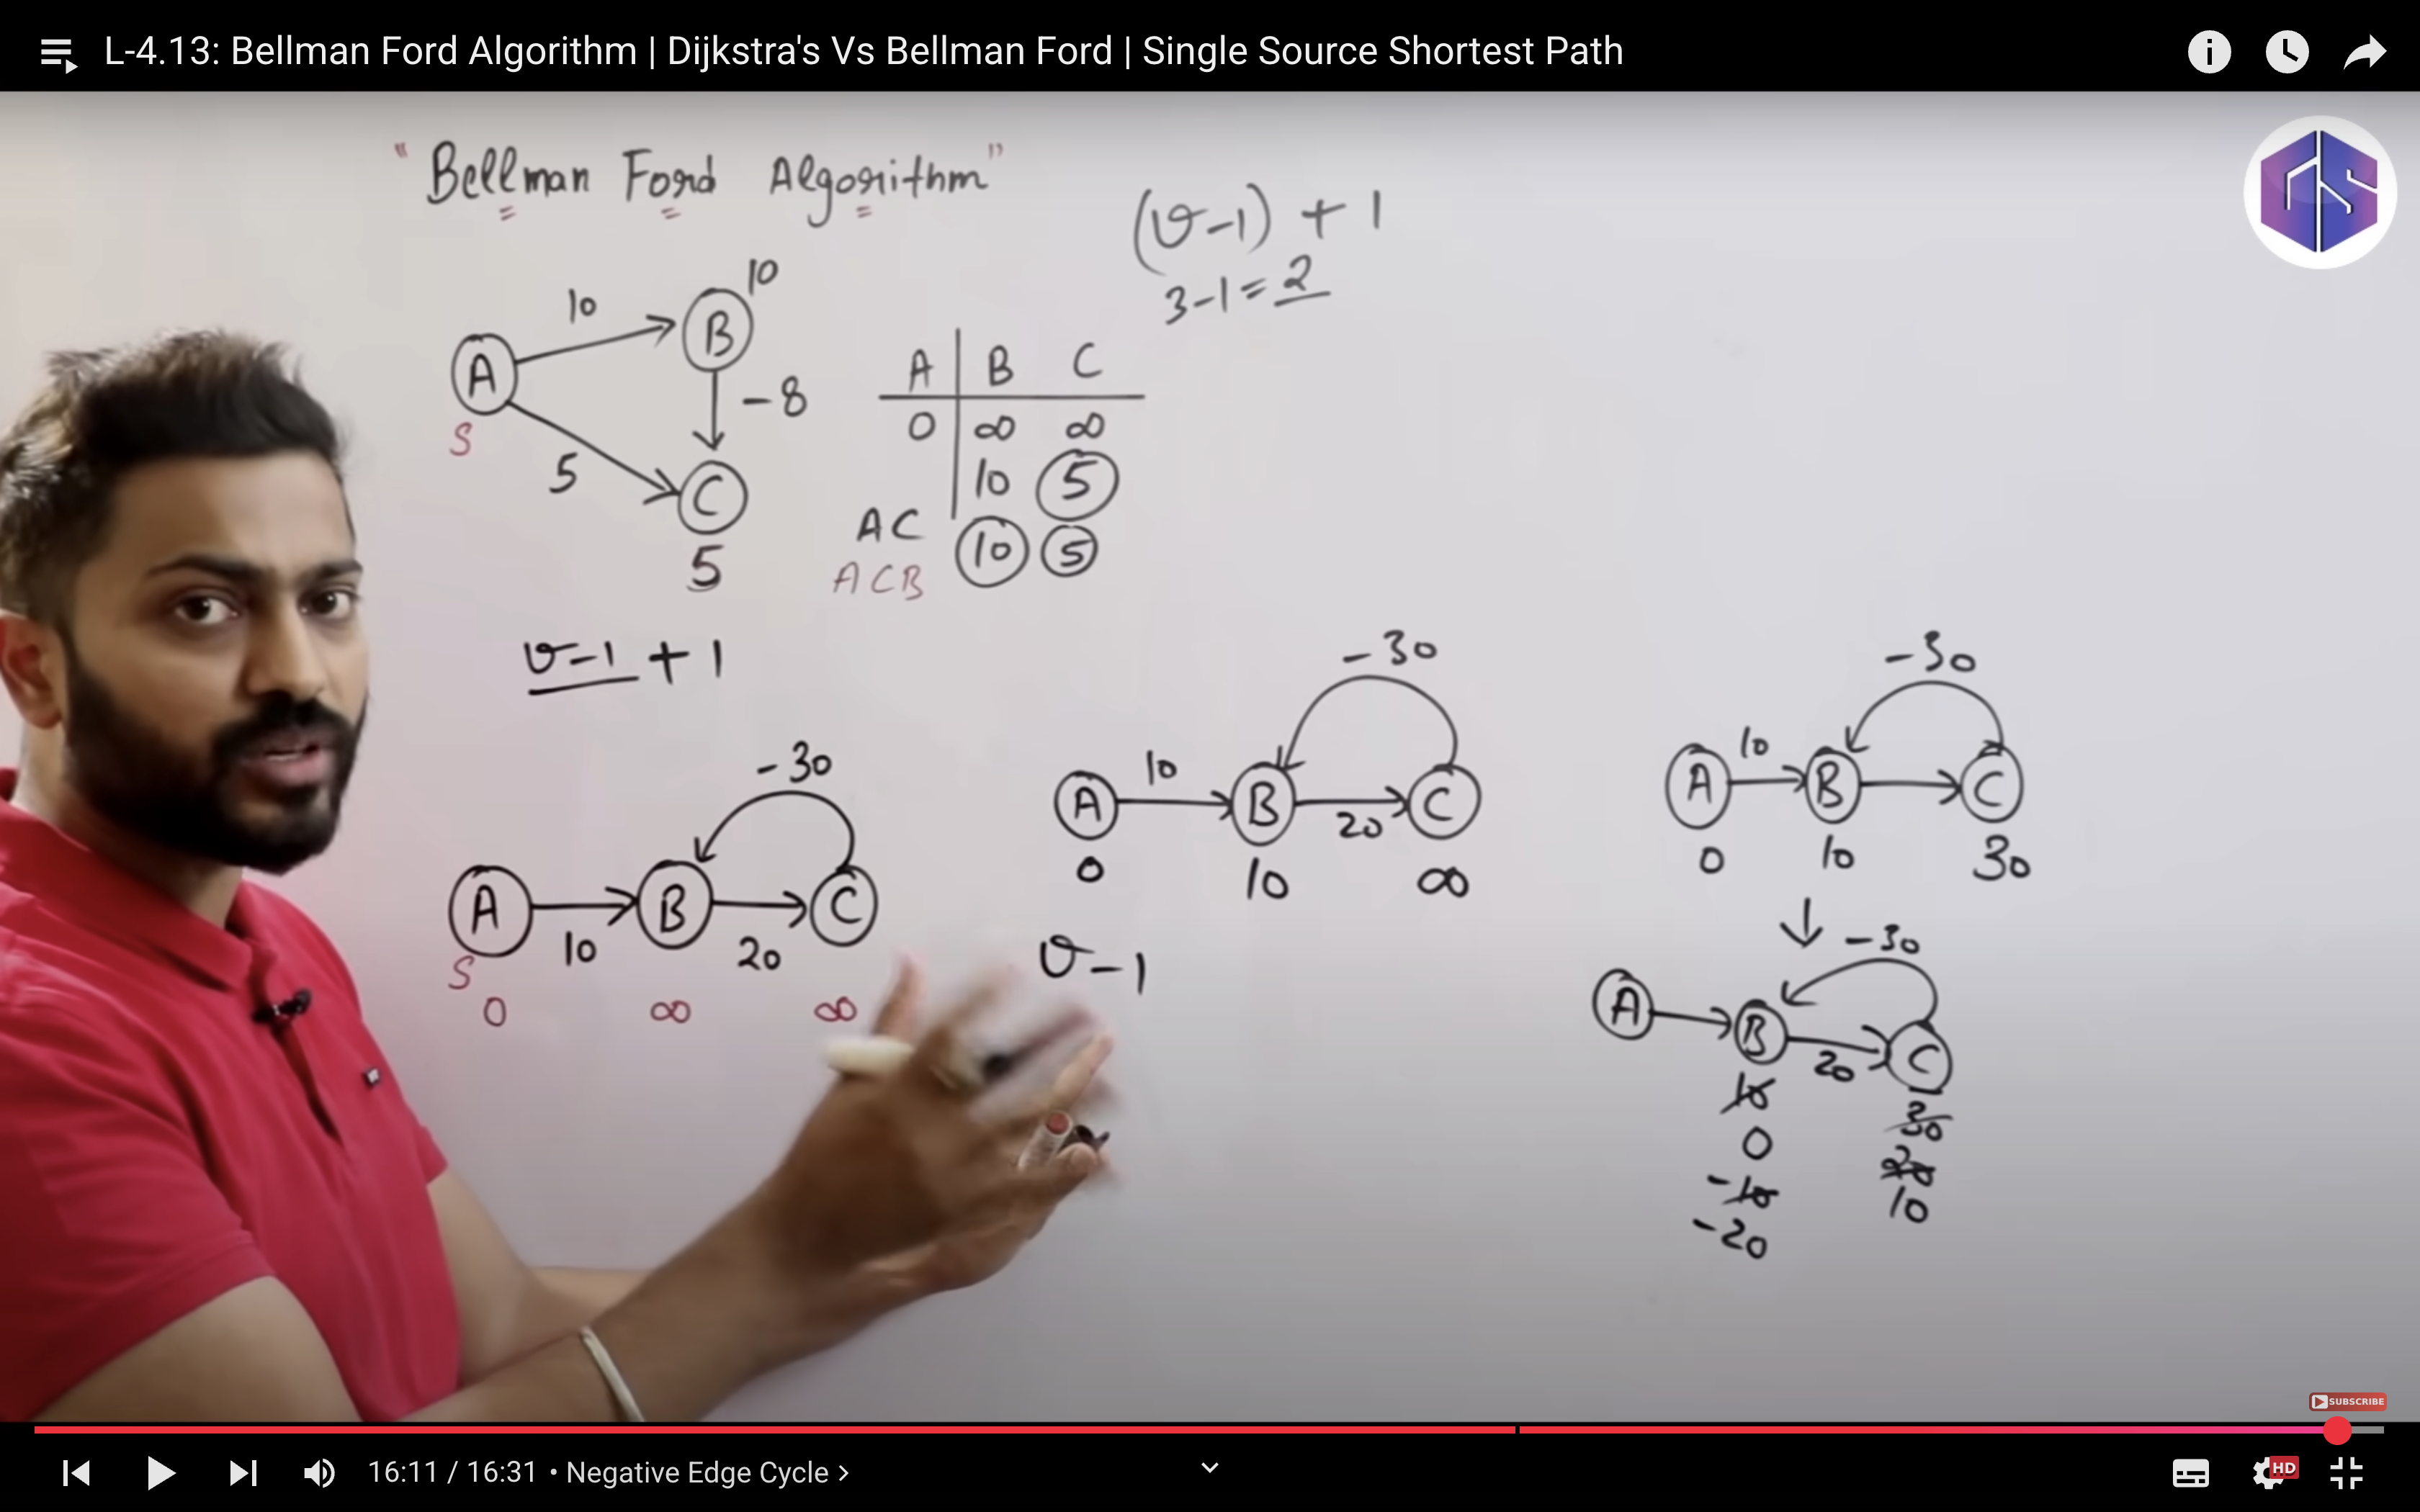 L-4.13: Bellman Ford Algorithm | Dijkstra's Vs Bellman Ford | Single Source Shortest Path
"Bellman Ford Algorithm"
(v-1) + 1
3-1=2
10
10
A
B
-8
S
5
C
5
A B C
0 ∞ ∞
10 5
AC 10 5
ACB
v-1 + 1
-30
A B C
10 20
S
0 ∞ ∞
-30
10
A B C
20
0 10 ∞
v-1
-30
10
A B C
0 10 30
-30
A B C
20
10 30
0 20
-10 10
-20
SUBSCRIBE
16:11 / 16:31 • Negative Edge Cycle >
HD